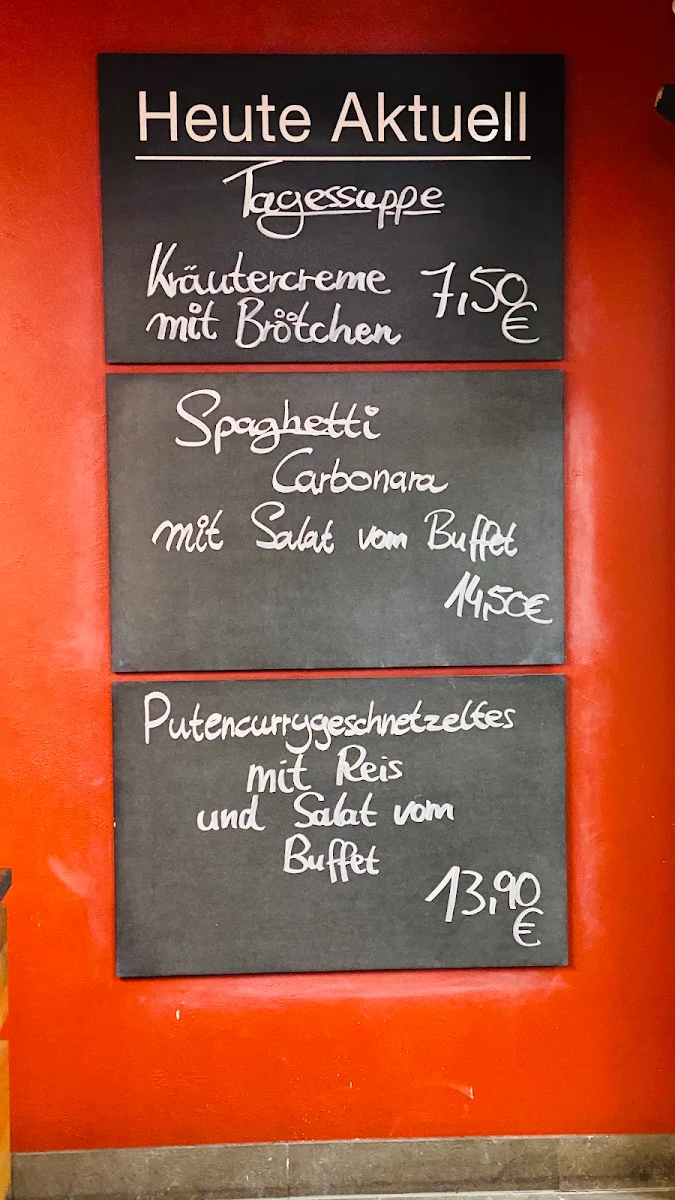 Heute Aktuell
Tagessuppe
Kräutercreme 7,50
mit Brötchen €
Spaghetti
Carbonara
mit Salat vom Buffet
14,50€
Putencurrygeschnetzeltes
mit Reis
und Salat vom
Buffet
13,90
€